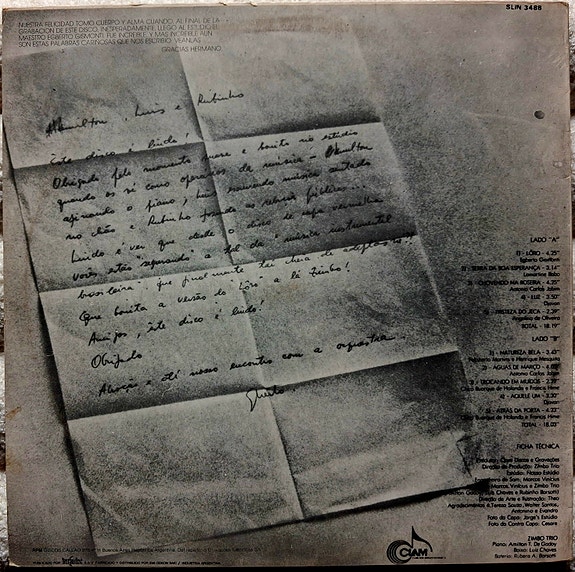 NUESTRA FELICIDAD TOMO CUERPO Y ALMA CUANDO, AL FINAL DE LA
GRABACION DE ESTE DISCO, INESPERADAMENTE, LLEGO AL ESTUDIO EL
MAESTRO EGBERTO GISMONTI. FUE INCREIBLE, Y MAS INCREIBLE AUN
SON ESTAS PALABRAS CARIÑOSAS QUE NOS ESCRIBIO. VEANLAS.
GRACIAS HERMANO.
SLIN 3488
Hamilton, Luis e Rubinho
Este disco é lindo!
Obrigado pelo momento suave e bonito no estúdio
quando os vi como operários da música – Hamilton
afinando o piano, Luis ensinando música sentado
no chão e Rubinho
Lindo é ver que desde o disco de capa vermelha
vocês estão "separando" a tal da "música instrumental
brasileira", que finalmente tá cheia de adeptos!!
Que bonita a versão do "Lôro" a lá Zimbo!
Amigos, este disco é lindo!
Obrigado
Abração e até nosso encontro com a orquestra...
Egberto
LADO "A"
1) - LÔRO - 4.25"
Egberto Gismonti
2) - SERRA DA BOA ESPERANÇA - 3.14"
Lamartine Babo
3) - CHOVENDO NA ROSEIRA - 4.25"
Antonio Carlos Jobim
4) - LUZ - 3.50"
Djavan
5) - TRISTEZA DO JECA - 2.39"
Angelino de Oliveira
TOTAL - 18.19"
LADO "B"
1) - NATUREZA BELA - 3.43"
Felisberto Martins y Henrique Mesquita
2) - AGUAS DE MARÇO - 4.03"
Antonio Carlos Jobim
3) - TROCANDO EM MIUDOS - 2.39"
Chico Buarque de Holanda e Francis Hime
4) - AQUELE UM - 3.30"
Djavan
5) - ATRAS DA PORTA - 4.22"
Chico Buarque de Holanda e Francis Hime
TOTAL - 18.03"
FICHA TÉCNICA
Produtor: Clam Discos e Gravações
Direção de Produção: Zimbo Trio
Estúdio: Eldorado
de Som: Marcos Vinicius
Marcos Vinicius e Zimbo Trio
Luis Chaves e Rubinho Barsotti)
Direção de Arte e Ilustração: Theo
Agradecimentos a Tereza Souza, Walter Santos,
Antonena e Evandro
Foto da Capa: Jorge's Estúdio
Foto da Contra Capa: Cesare
CLAM
ZIMBO TRIO
Piano: Amilton T. De Godoy
Baixo: Luis Chaves
Bateria: Rubens A. Barsotti